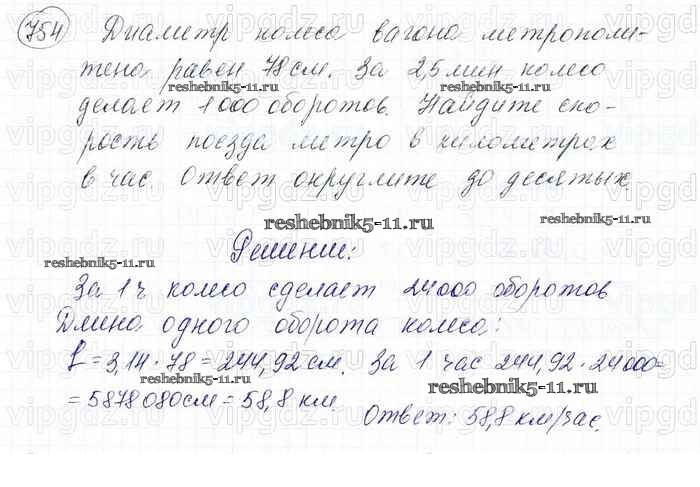 754 Диаметр колеса вагона метрополи-
тена равен 78 см. За 2,5 мин колесо
reshebnik5-11.ru reshebnik5-11.ru
делает 1000 оборотов. Найдите ско-
рость поезда метро в километрах
в час. Ответ округлите до десятых.
reshebnik5-11.ru reshebnik5-11.ru
Решение:
reshebnik5-11.ru
За 1 ч колесо сделает 24000 оборотов
Длина одного оборота колеса:
L = 3,14 · 78 = 244,92 см. За 1 час 244,92 · 24000=
reshebnik5-11.ru
= 5878080см = 58,8 км.
Ответ: 58,8 км/час.